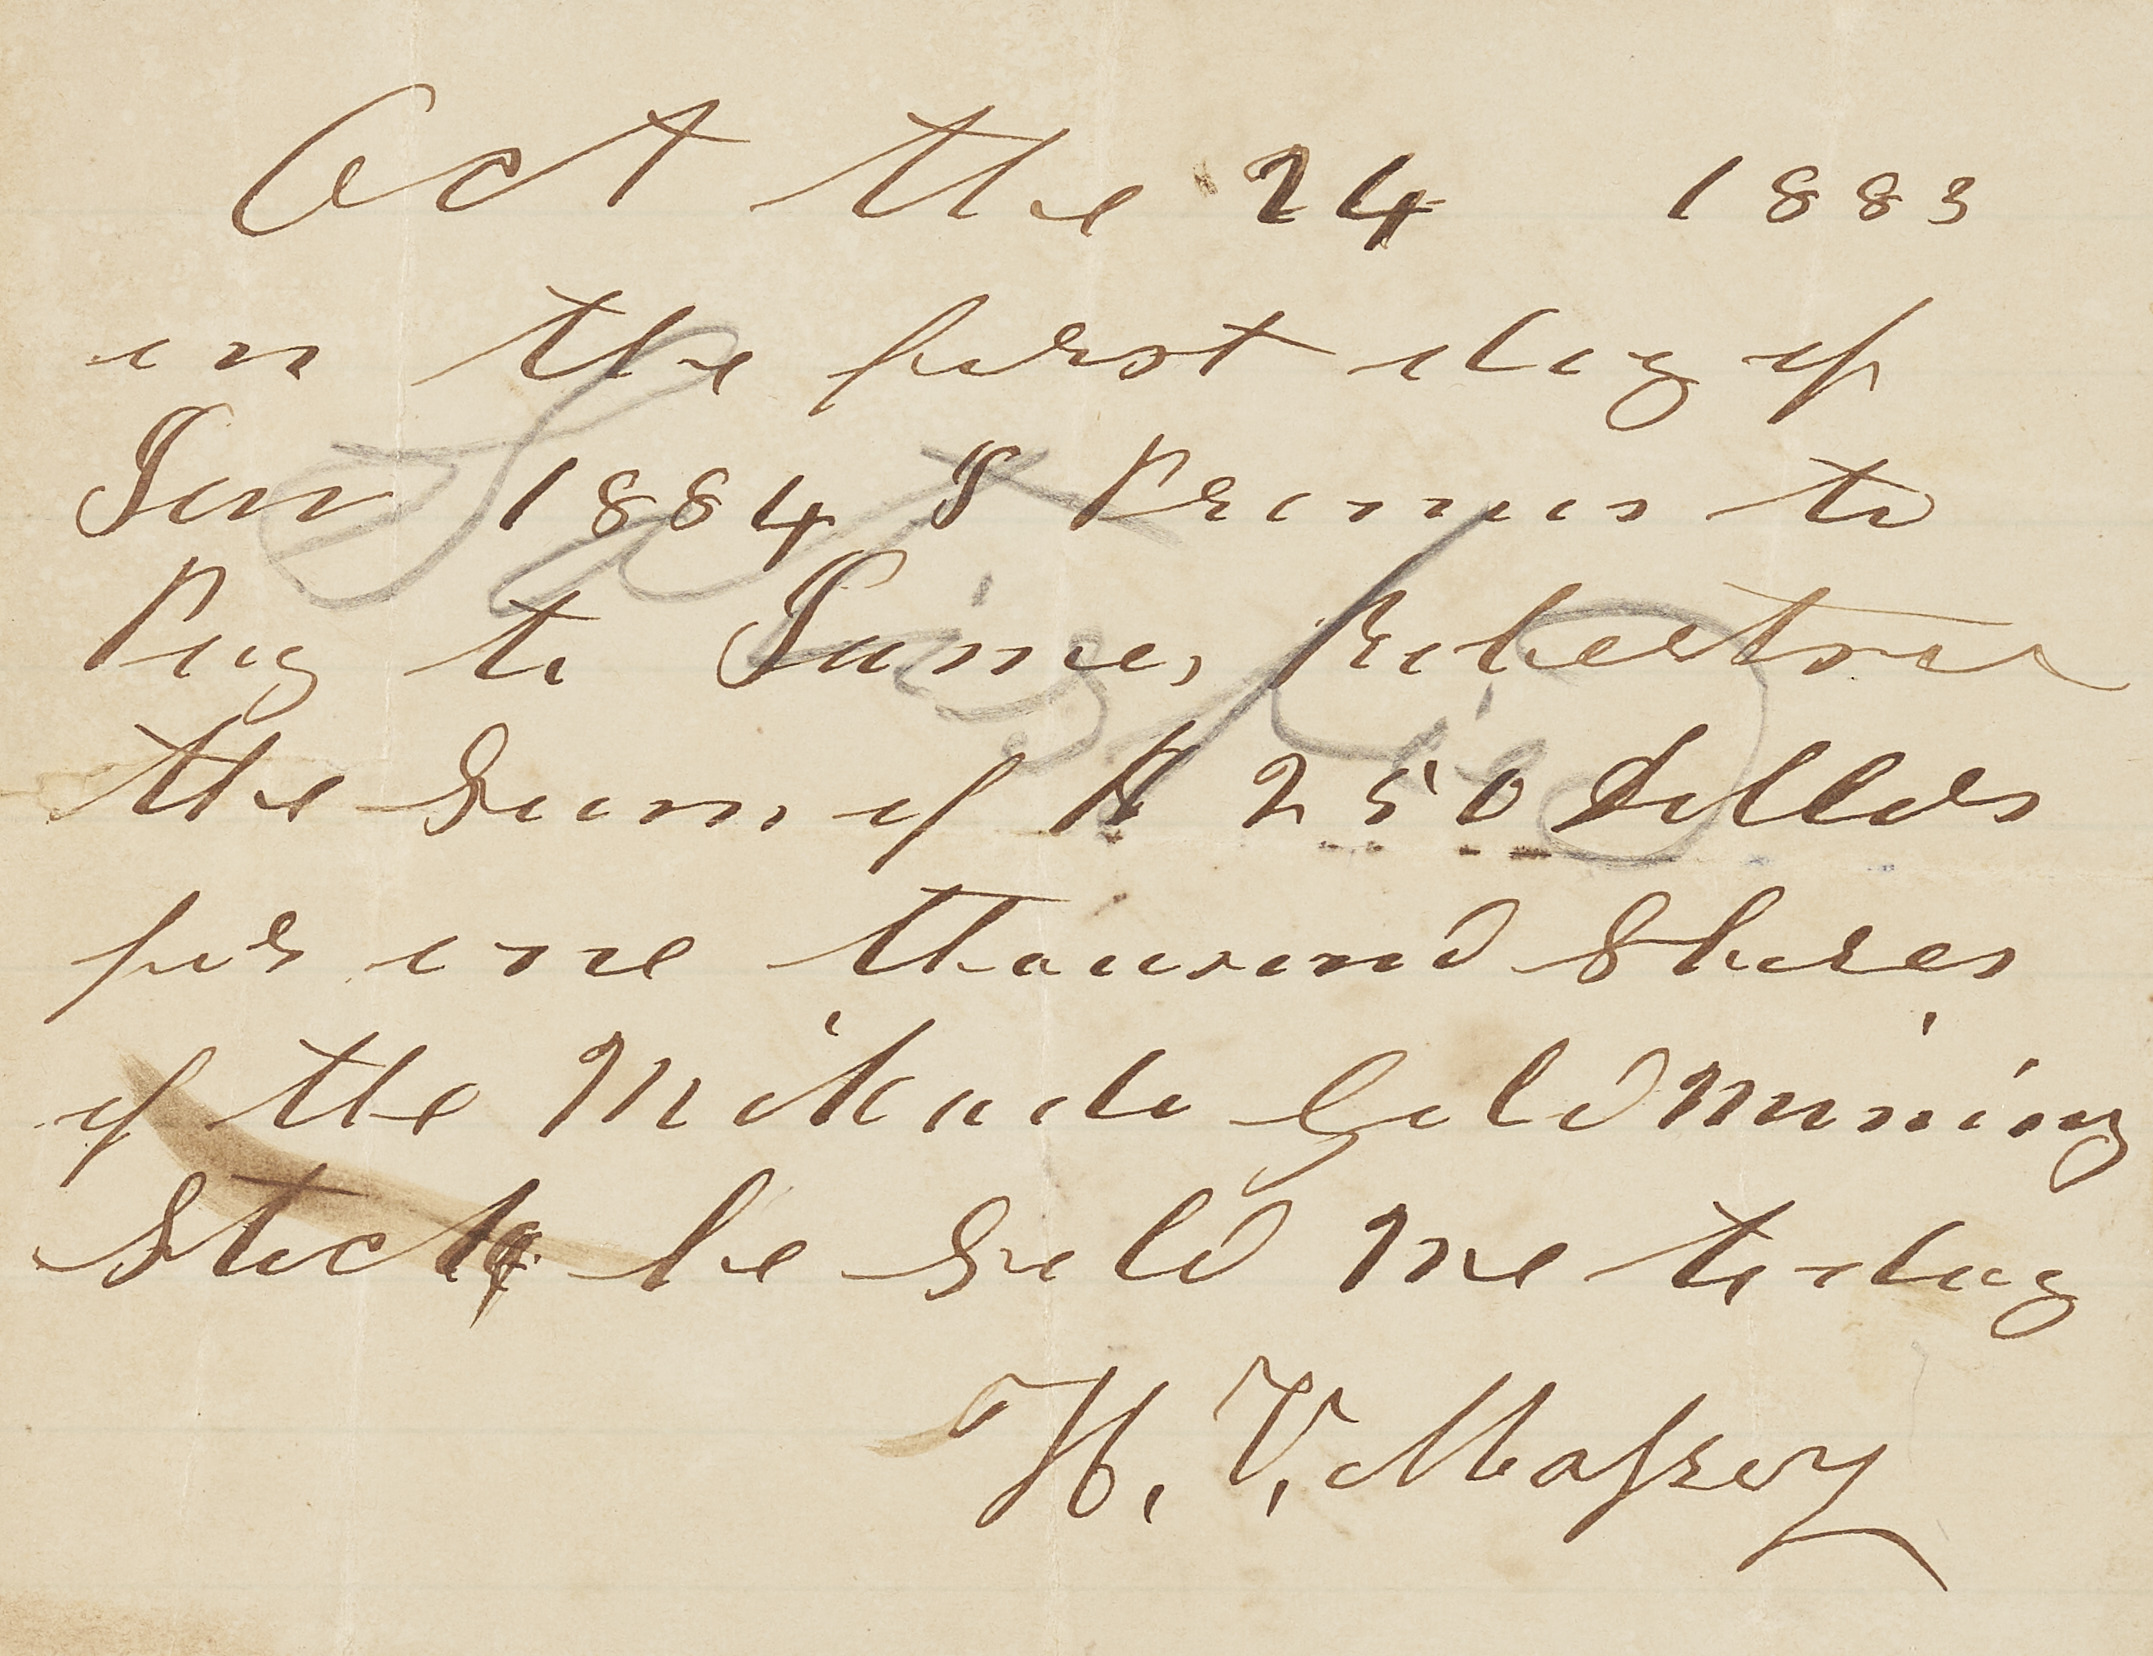 Oct the 24 1883
on the first day of
Jan 1884 I Promis to
Pay to James Robertson
the Sum of $ 250 Dollars
for one thousand Shares
of the Mikado Gold Mining
Stock he Sold Me to day
H. V. Massey